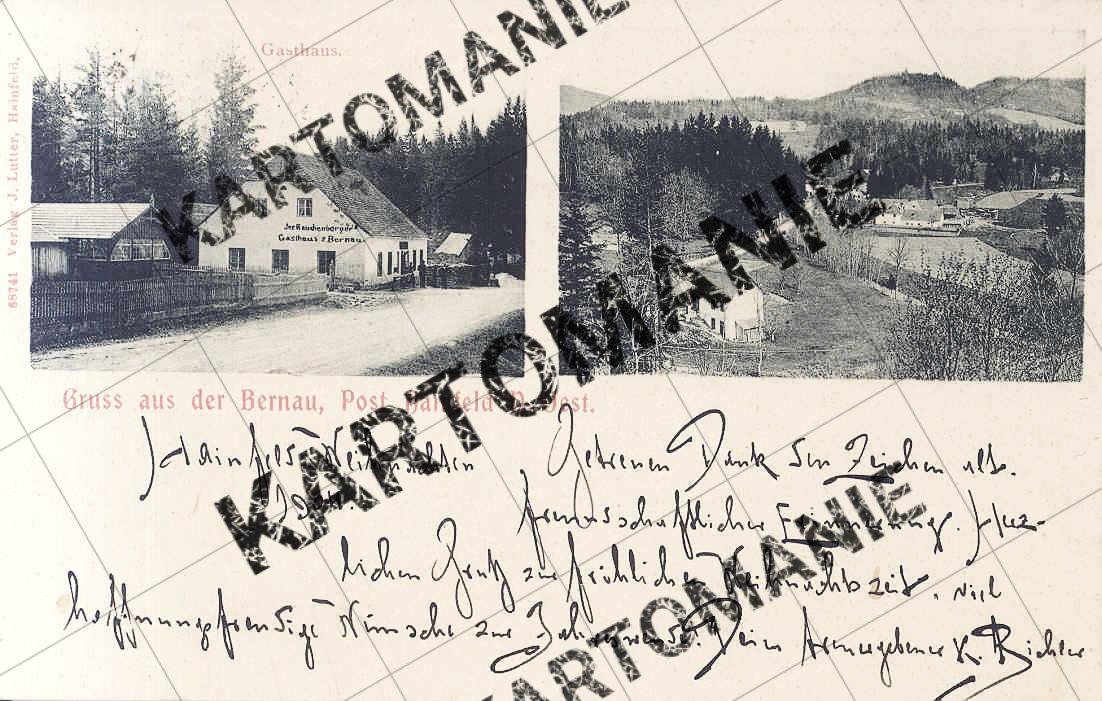 Gasthaus.
68741 Verlag J. Lutter, Hainfeld.
Jos. Rauchenberger's
Gasthaus z. Bernau
Gruss aus der Bernau, Post Hainfeld N. Oest.
Hainfeld Weihnachten
Getreuen Dank den Zeichen alt-
freundschaftlicher Erinnerung. Herz-
lichen Gruß zur fröhlichen Weihnachtszeit, viel
hoffnungsfreudige Wünsche zur Jahreswende! Dein treuergebener K. Bichler
KARTOMANIE
KARTOMANIE
KARTOMANIE
KARTOMANIE
KARTOMANIE